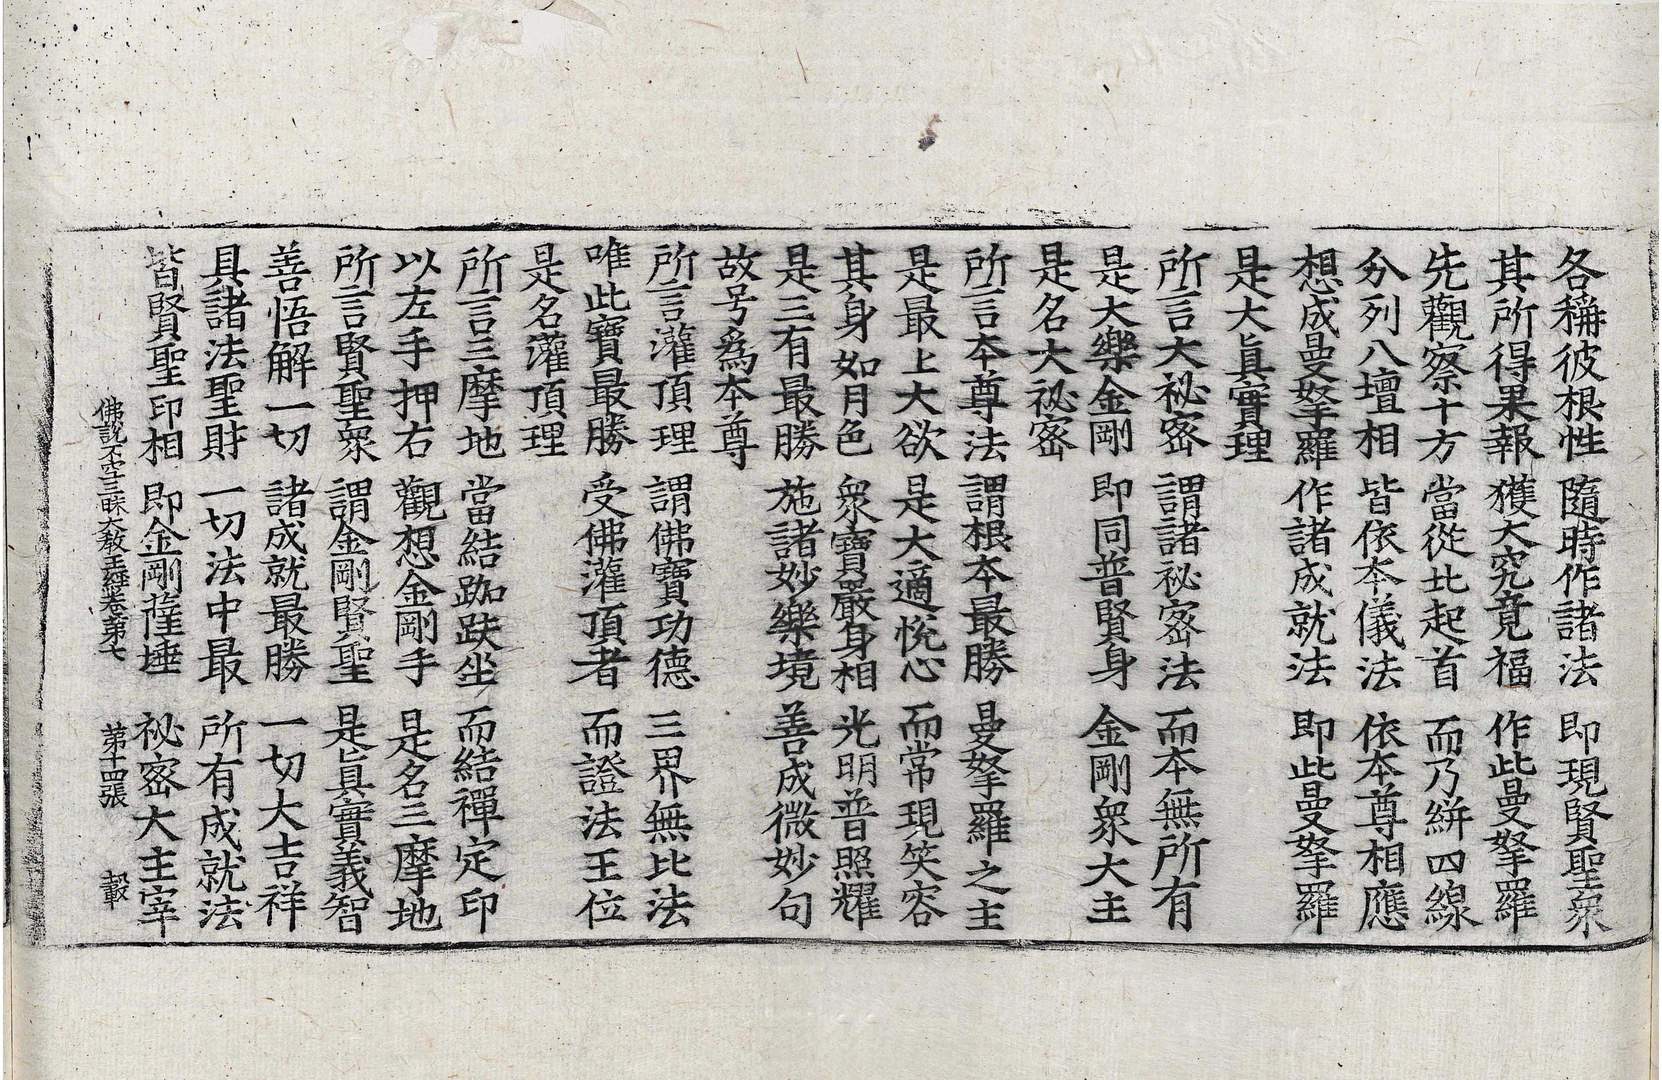 各稱彼根性 隨時作諸法 即現賢聖衆
其所得果報 獲大究竟福 作此曼拏羅
先觀察十方 當從北起首 而乃絣四線
分列八壇相 皆依本儀法 依本尊相應
想成曼拏羅 作諸成就法 即此曼拏羅
是大眞實理
所言大祕密 謂諸祕密法 而本無所有
是大樂金剛 即同普賢身 金剛衆大主
是名大祕密
所言本尊法 謂根本最勝 曼拏羅之主
是最上大欲 是大適悅心 而常現笑容
其身如月色 衆寶嚴身相 光明普照耀
是三有最勝 施諸妙樂境 善成微妙句
故号爲本尊
所言灌頂理 謂佛寶功德 三界無比法
唯此寶最勝 受佛灌頂者 而證法王位
是名灌頂理
所言三摩地 當結跏趺坐 而結禪定印
以左手押右 觀想金剛手 是名三摩地
所言賢聖衆 謂金剛賢聖 是眞實義智
善悟解一切 諸成就最勝 一切大吉祥
具諸法聖財 一切法中最 所有成就法
皆賢聖印相 即金剛薩埵 祕密大主宰
佛說不空三昧大敎王經卷第七 第十四張 轂